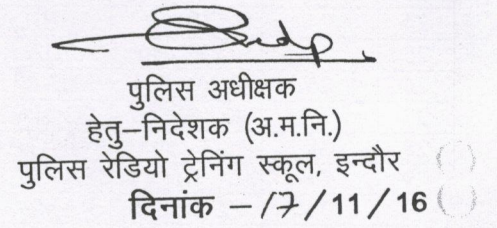 पुलिस अधीक्षक
हेतु–निदेशक (अ.म.नि.)
पुलिस रेडियो ट्रेनिंग स्कूल, इन्दौर
दिनांक – 17/11/16